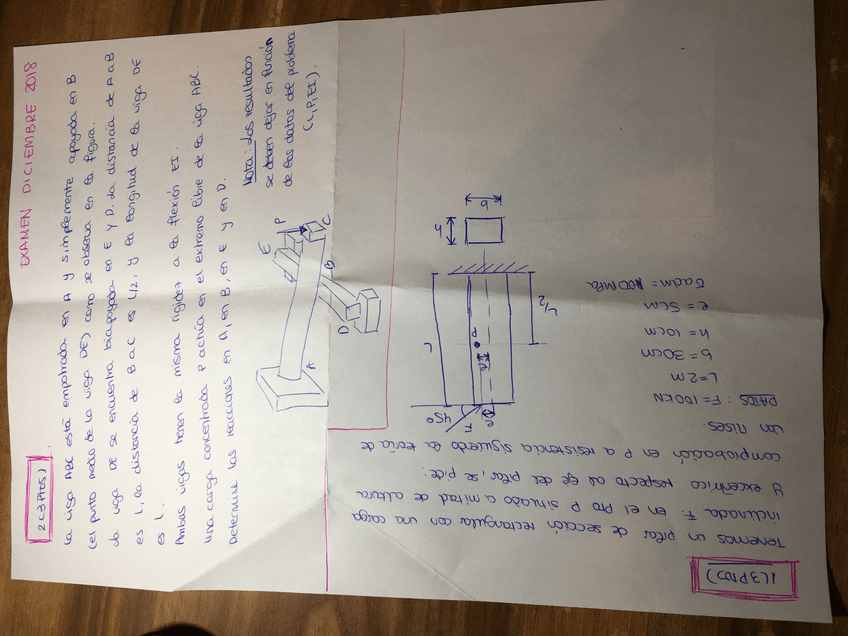 EXAMEN DICIEMBRE 2018
2 (3 PTOS)
La viga ABC está empotrada en A y simplemente apoyada en B
(es punto medio de la viga DE) como se observa en la figura.
La viga DE se encuentra biapoyada en E y D. La distancia de A a B
es L, la distancia de B a C es L/2, y la longitud de la viga DE
es L.
Ambas vigas tienen la misma rigidez a la flexión EI.
Una carga concentrada P actúa en el extremo libre de la viga ABC.
Determine las reacciones en A, en B, en E y en D.
Nota: Los resultados
se deben dejar en función
de los datos del problema
(L, P, EI).
E
P
C
B
D
A
1 (3 PTOS)
Tenemos un pilar de sección rectangular con una carga
inclinada F. en el pto P situado a mitad de altura
y excéntrico respecto al eje del pilar, se pide:
comprobación en P a resistencia siguiendo la teoría de
Von Mises.
DATOS: F=100KN
L=2m
b=30cm
h=10cm
e=5cm
σadm=100MPa
45º
F
e
P
e
L
L/2
h
b